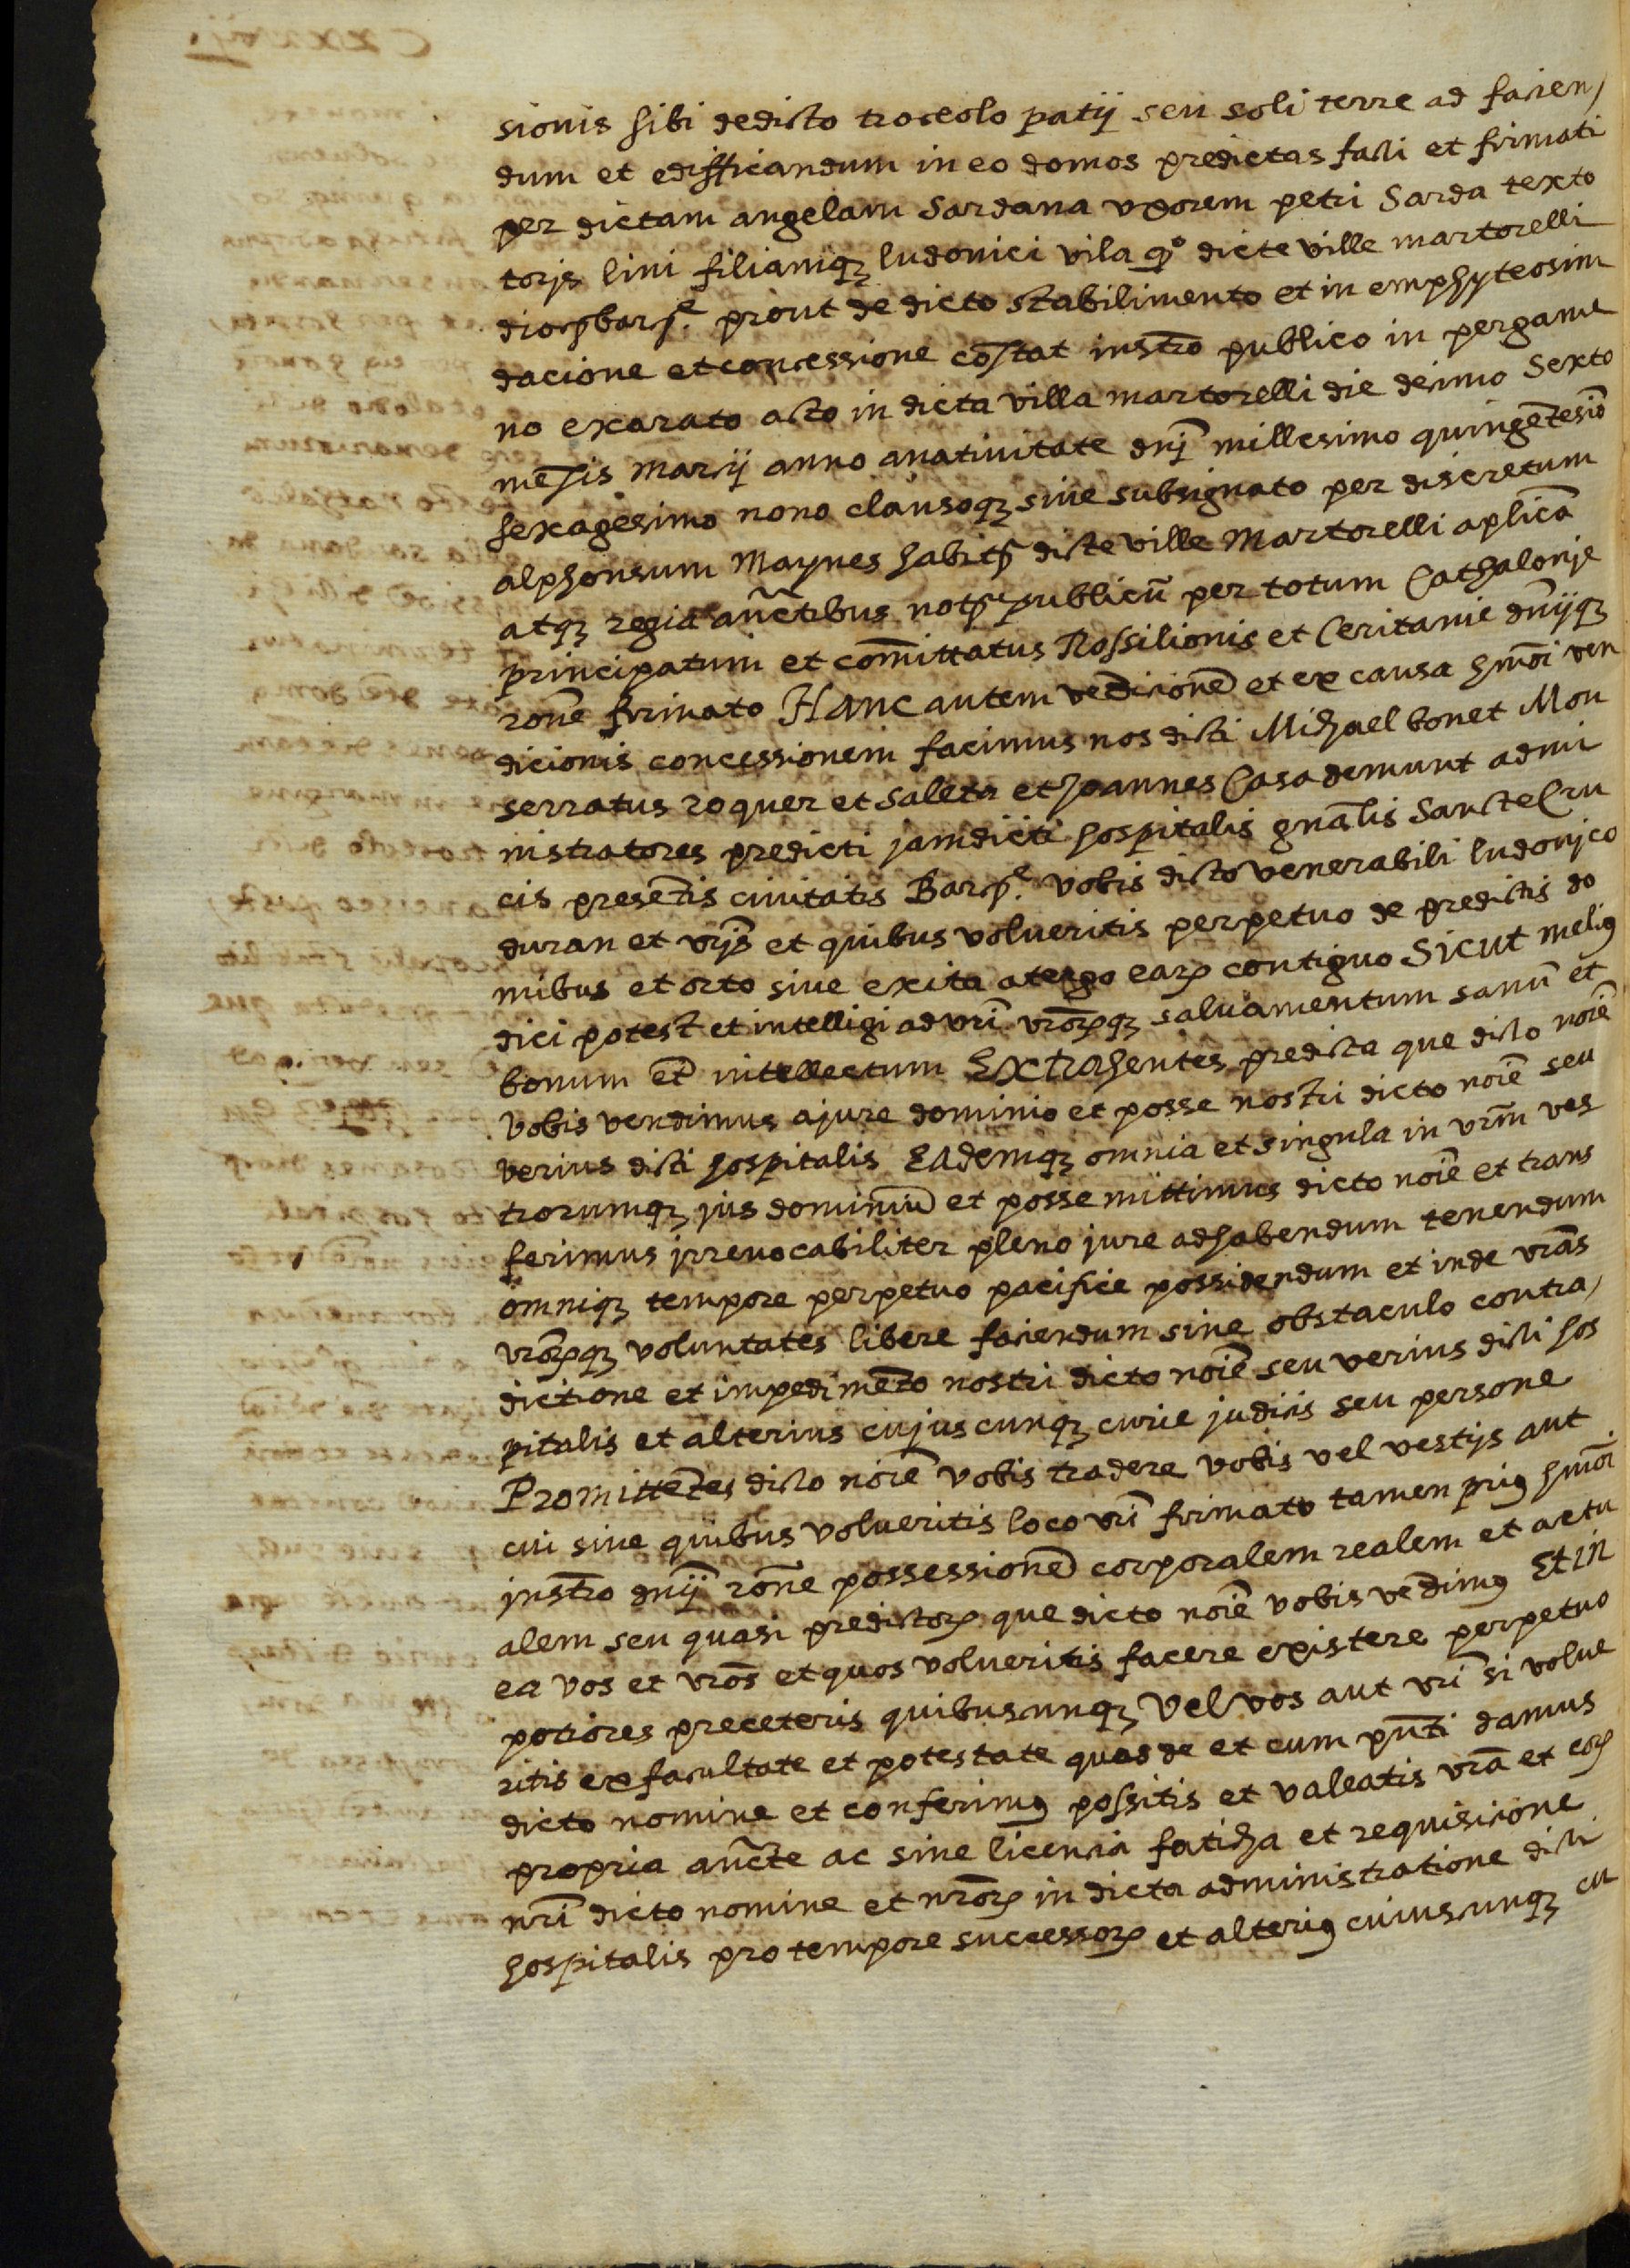 sionis sibi dedicto troceolo patij seu soli terre ad facien/
dum et ediffficandum in eo domos predictas facti et firmati
per dictam angelam Sardana uxorem petri Sarda texto
torjs lini filiamqz ludovici vila qº dicte ville martorelli
diocbar. prout de dicto stabilimento et in emphyteosim
dacione et concessione cōstat instrō publico in pergame
no exarato acto in dicta villa martorelli die decimo Sexto
mēsis Marcij anno anativitate dnj millesimo quingētesiō
sexagesimo nono clausoqz sive subsignato per discretum
alphonsum Maynes habit dicte ville Martorelli aplicā
atqz regia auctībus not publicū per totum Cathalonje
principatum et comittatus Rossilionis et Ceritanie dnijqz
rone firmato Hanc autem vēdicionē et ex causa hmōi ven
dicionis concessionem facimus nos dicti Michael bonet Mon
serratus roquer et Saleta et Joannes Casademunt admi
nistratores predicti jamdicti hospitalis gnālis Sancte Cru
cis presētis civitatis Bar. vobis dicto venerabili ludovjco
duran et vrjs et quibus volueritis perpetuo de predictis do
mibus et orto sive exita atergo ear contiguo Sicut meli9
dici potest et intelligi ad vri vrorqz salvamentum sanū et
bonum et intellectum Extrahentes predicta que dicto noīe
vobis vendimus ajure dominio et posse nostri dicto noīe seu
verius dicti hospitalis Eademqz omnia et singula in vrm ves
trorumqz jus dominiū et posse mittimus dicto noīe et trans
ferimus jrrevocabiliter pleno jure adhabendum tenendum
omniqz tempore perpetuo pacifice possidendum et inde vrās
vrorqz voluntates libere faciendum sine obstaculo contra/
dictione et impedimēto nostri dicto noīe seu verius dicti hos
pitalis et alterius cujuscunqz curie judicis seu persone
Promittētes dicto noīe vobis tradere vobis vel vestijs aut
cui sive quibus volueritis loco vri firmato tamen pri9 hmōi
jnstrō dnij rōne possessionē corporalem realem et actu
alem seu quasi predictor que dicto noīe vobis vēdim9 Et in
ea vos et vrōs et quos volueritis facere existere perpetuo
potiores preceteris quibuscunqz Vel vos aut vri si volue
ritis ex facultate et potestate quas de et cum pnti damus
dicto nomine et conferim9 possitis et valeatis vrā et eor
propria auctē ac sine licencia fatiha et requisicione
nri dicto nomine et nror in dicta administratione dicti
hospitalis pro tempore successor et alteri9 cuiuscunqz cu